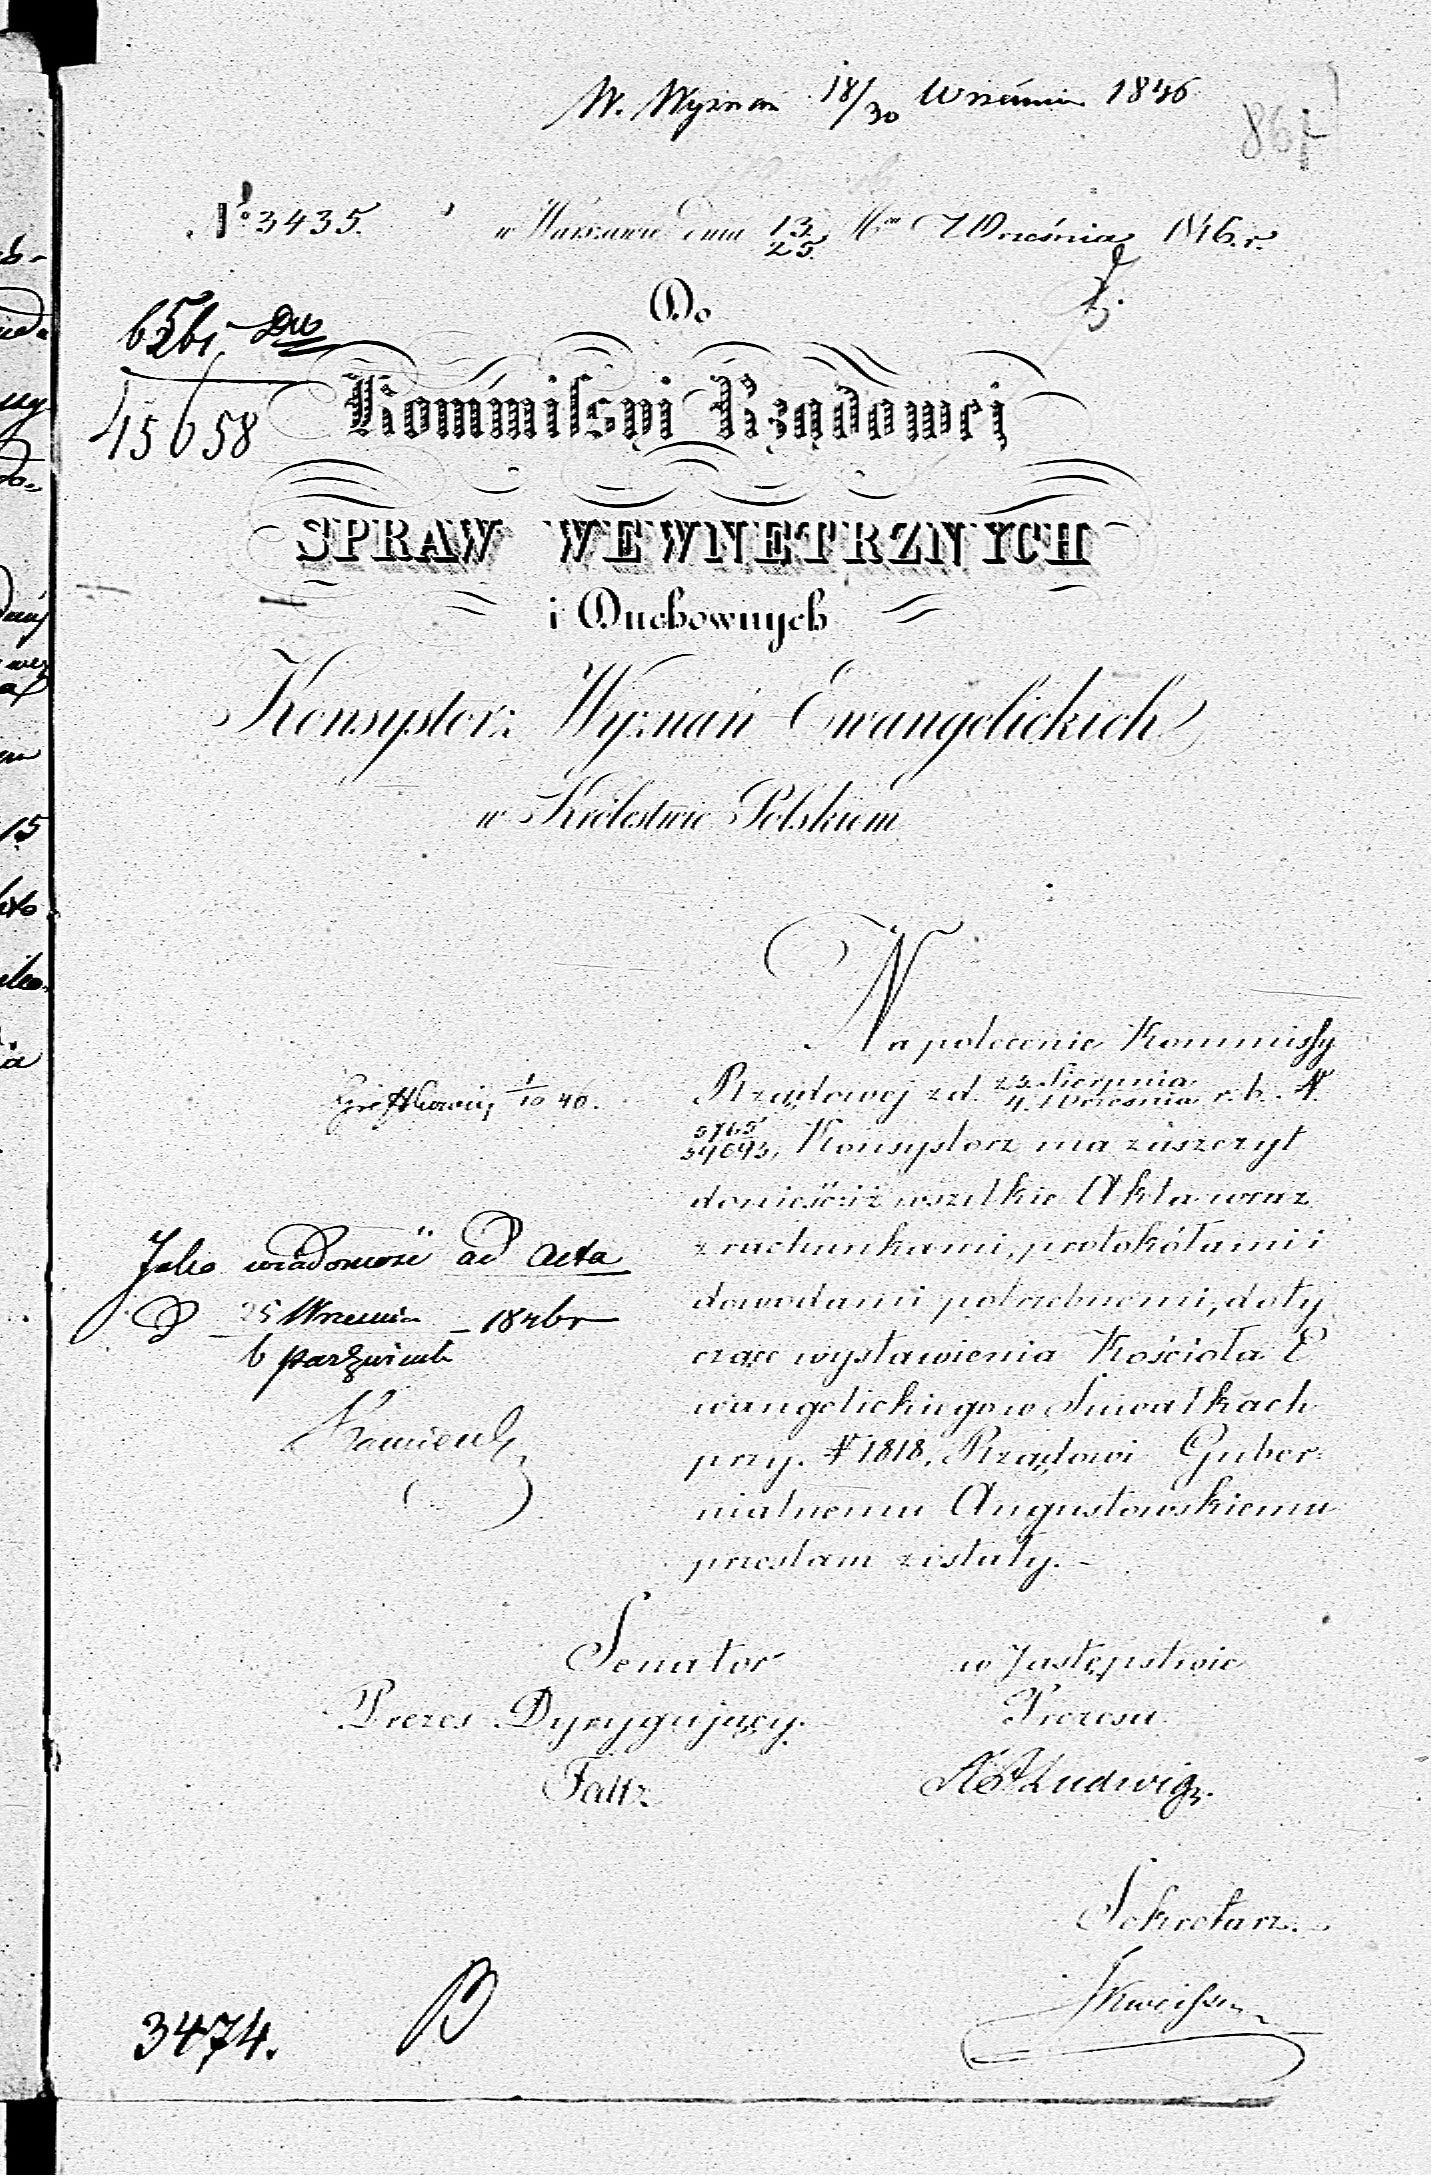 W. Wyznań 18/30 Września 1846
867
No 3435. w Warszawie dnia 13/25 Września 1846. r.
Do
6561 Dw
45658
Kommissyi Rządowej
SPRAW WEWNĘTRZNYCH
i Duchownych
Konsystorz Wyznań Ewangelickich
w Królestwie Polskiem
Na polecenie Kommissy
Rządowej z d. 23 Sierpnia/4 Września r. b. N
5765/39693, Konsystorz ma zaszczyt
donieść iż wszelkie Akta wraz
z rachunkami, protokółami i
dowodami potrzebnemi, doty
czące wystawienia Kościoła E
wangelickiego w Suwałkach
przy. N 1818, Rządowi Guber
nialnemu Augustowskiemu
przesłane zostały.
1/10 46.
Jako wiadomość ad Acta
D 25 Września 1846 r
6 Października
Senator
Prezes Dyrygujący.
Faltz
w Zastępstwie
Prezesa
Ludwig
Sekretarz
3474.
B